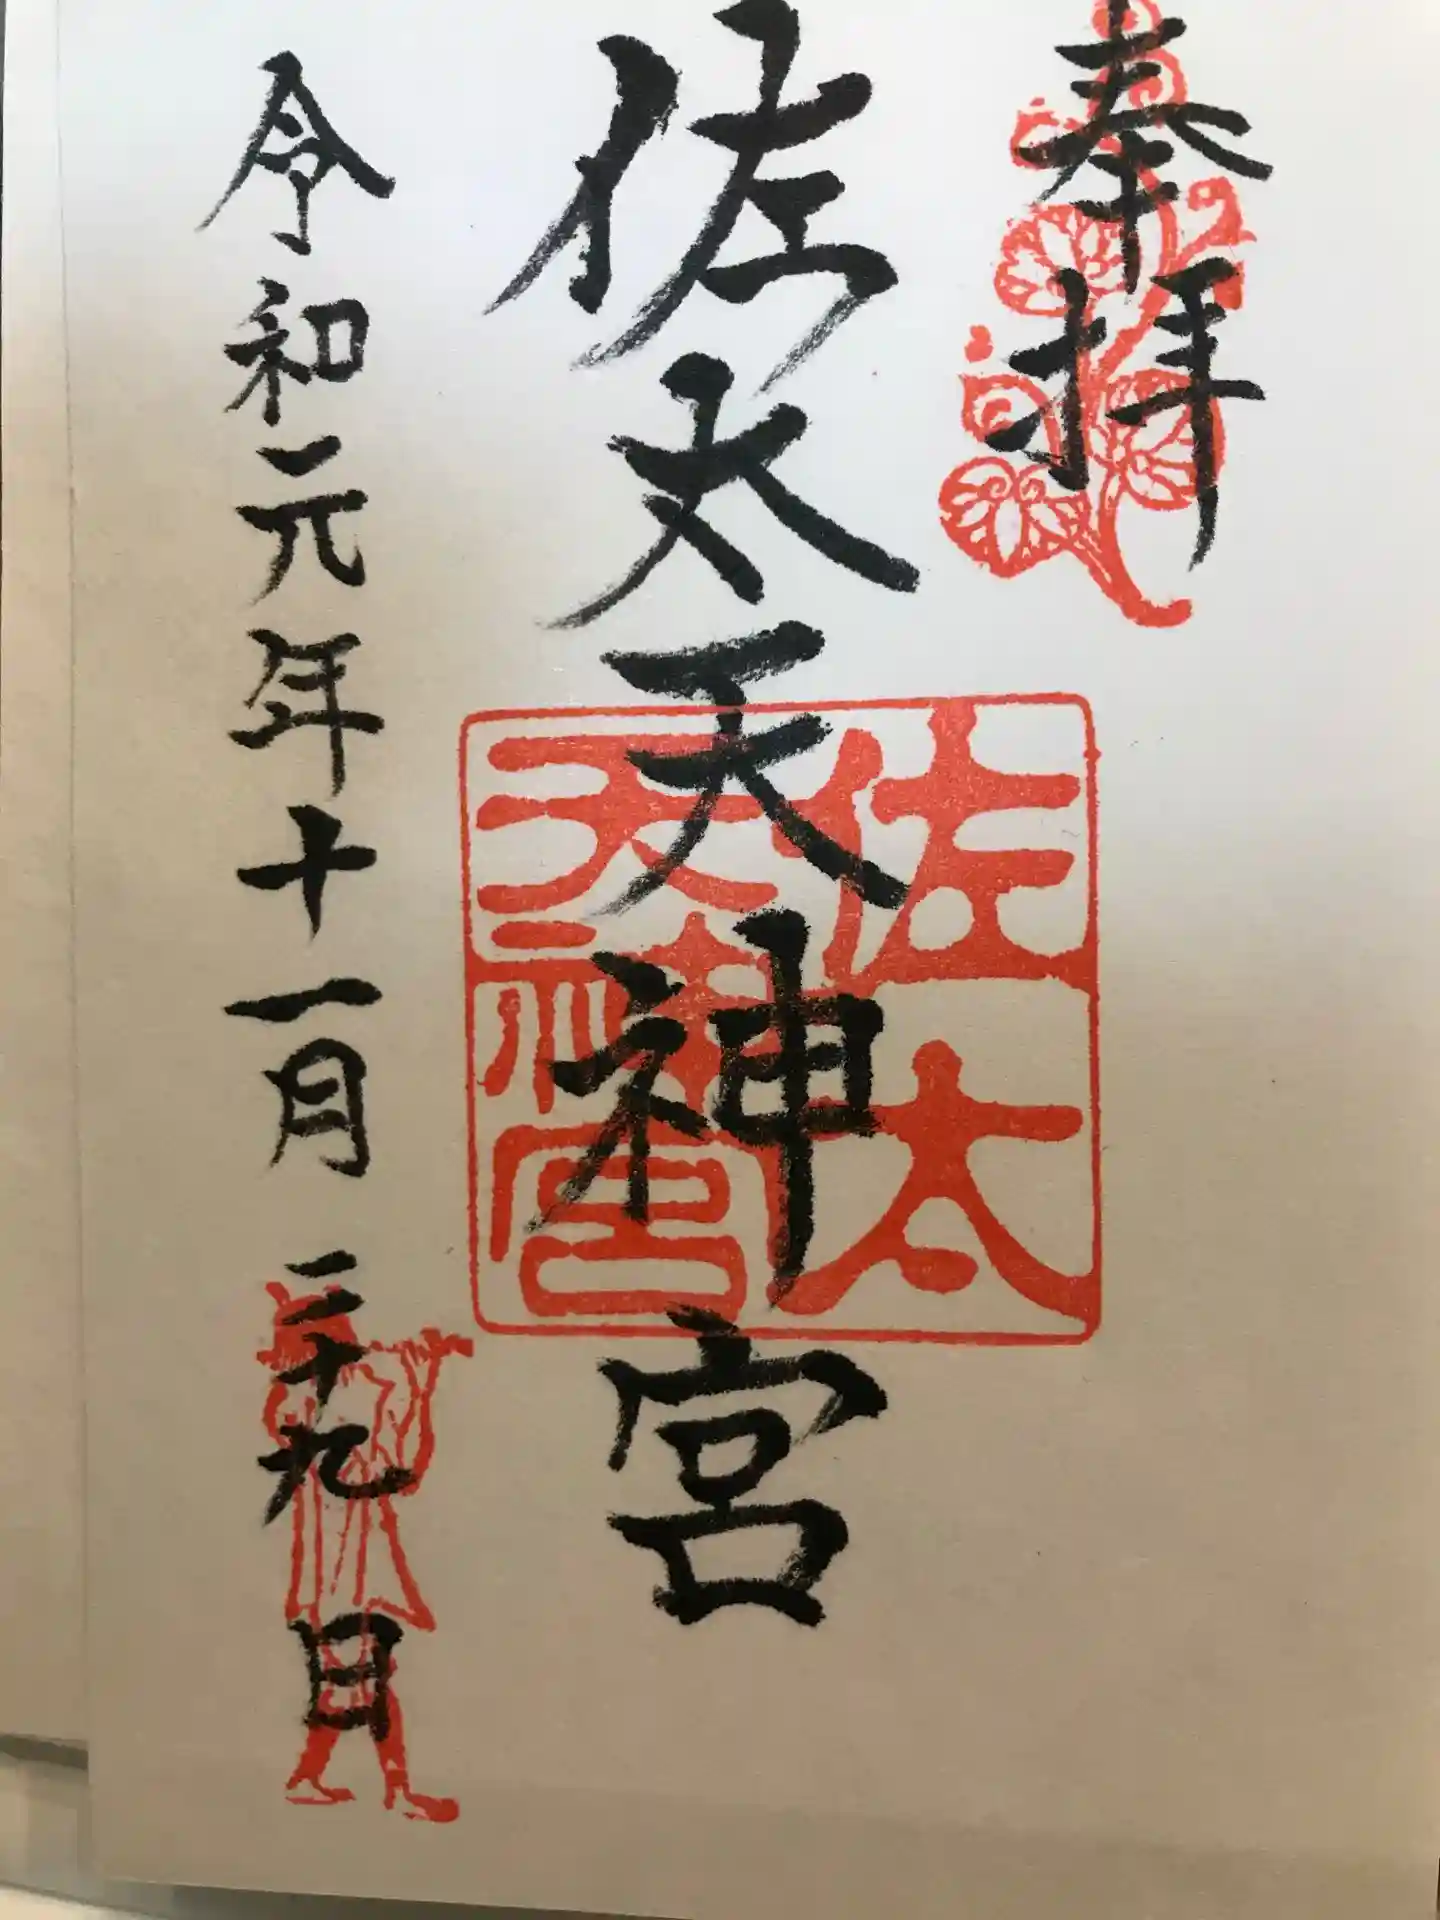 奉拝
佐太天神宮
佐太
天神宮
令和元年十一月二十九日